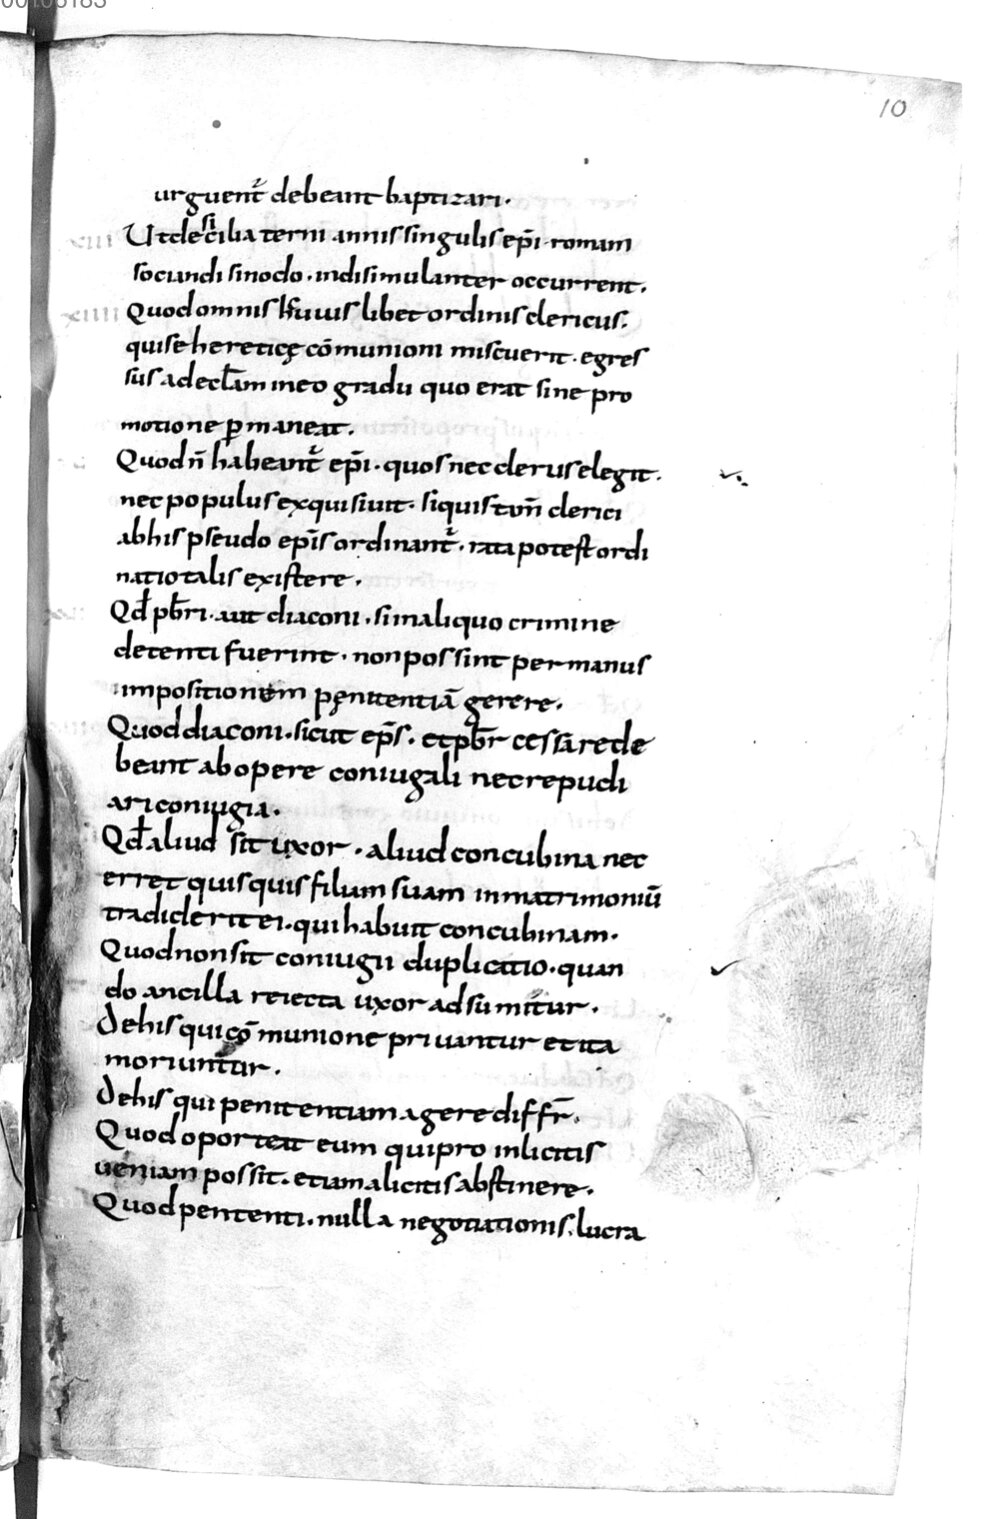 10
urguent̄ debeant baptizari.
Ut de sicilia terni annis singulis ep̄i romam
sociandi sinodo. indisimulanter occurrent.
Quod omnis huius libet ordinis clericus.
qui se hereticę cōmunioni miscuerit. egres
sus ad eccl̄am in eo gradu quo erat sine pro
motione ꝑmaneat.
Quod n̄ habeant̄ ep̄i. quos nec clerus elegit.
nec populus exquisiuit. siquis tam̄ clerici
ab his pseudo ep̄is ordinant̄. rata potest ordi
natio talis existere.
Qđ pb̄ri. aut diaconi. si in aliquo crimine
detenti fuerint. non possint per manus
impositionem pęnitentiā gerere.
Quod diaconi. sicut ep̄s. et pb̄r cessare de
beant ab opere coniugali nec repudi
ari coniugia.
Qđ aliud sit uxor. aliud concubina nec
erret quisquis filiam suam in matrimoniū
tradiderit ei. qui habuit concubinam.
Quod non sit coniugii duplicatio. quan
do ancilla reiecta uxor adsumitur.
De his qui cōmunione priuantur et ita
moriuntur.
De his qui penitentiam agere diffr̄.
Quod oporteat eum qui pro inlicitis
ueniam possit. etiam a licitis abstinere.
Quod pententi. nulla negotiationis. lucra